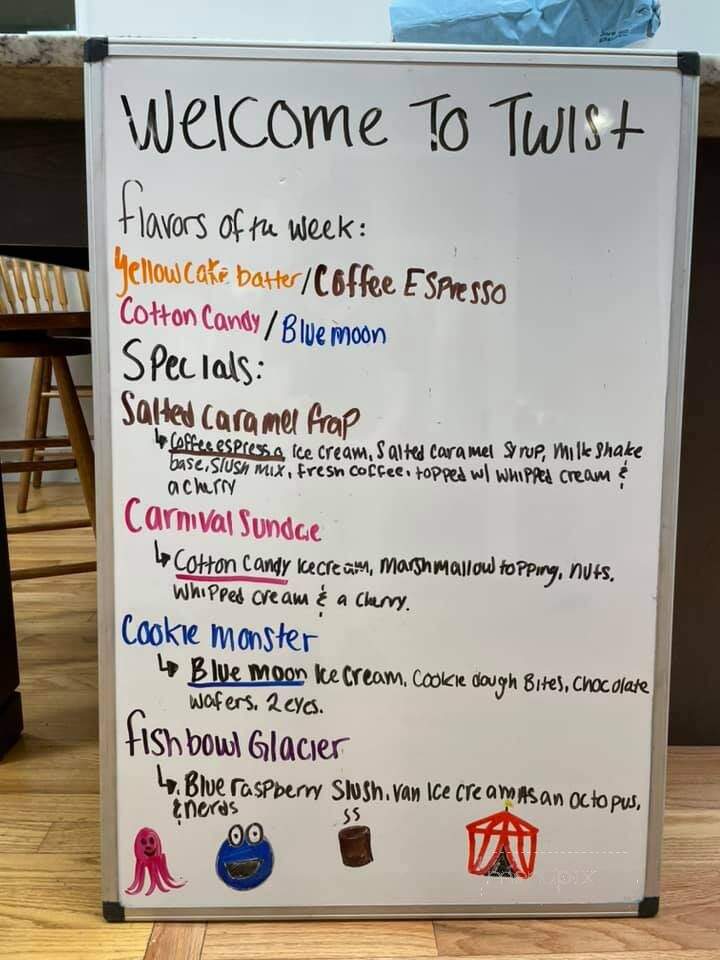 Welcome To Twist
flavors of the week:
Yellow Cake batter/Coffee Espresso
Cotton Candy/Blue moon
Specials:
Salted Caramel frap
↳ Coffee espresso Ice cream, Salted Caramel Syrup, Milk Shake
base, slush mix, fresh coffee, topped w/ whipped cream &
a cherry
Carnival Sundae
↳ Cotton Candy Icecream, Marshmallow topping, nuts,
whipped cream & a cherry.
Cookie monster
↳ Blue moon Ice cream, Cookie dough Bites, Chocolate
wafers, 2 eyes.
fishbowl Glacier
↳ Blue raspberry Slush, van Ice cream as an octopus,
& nerds
menupix